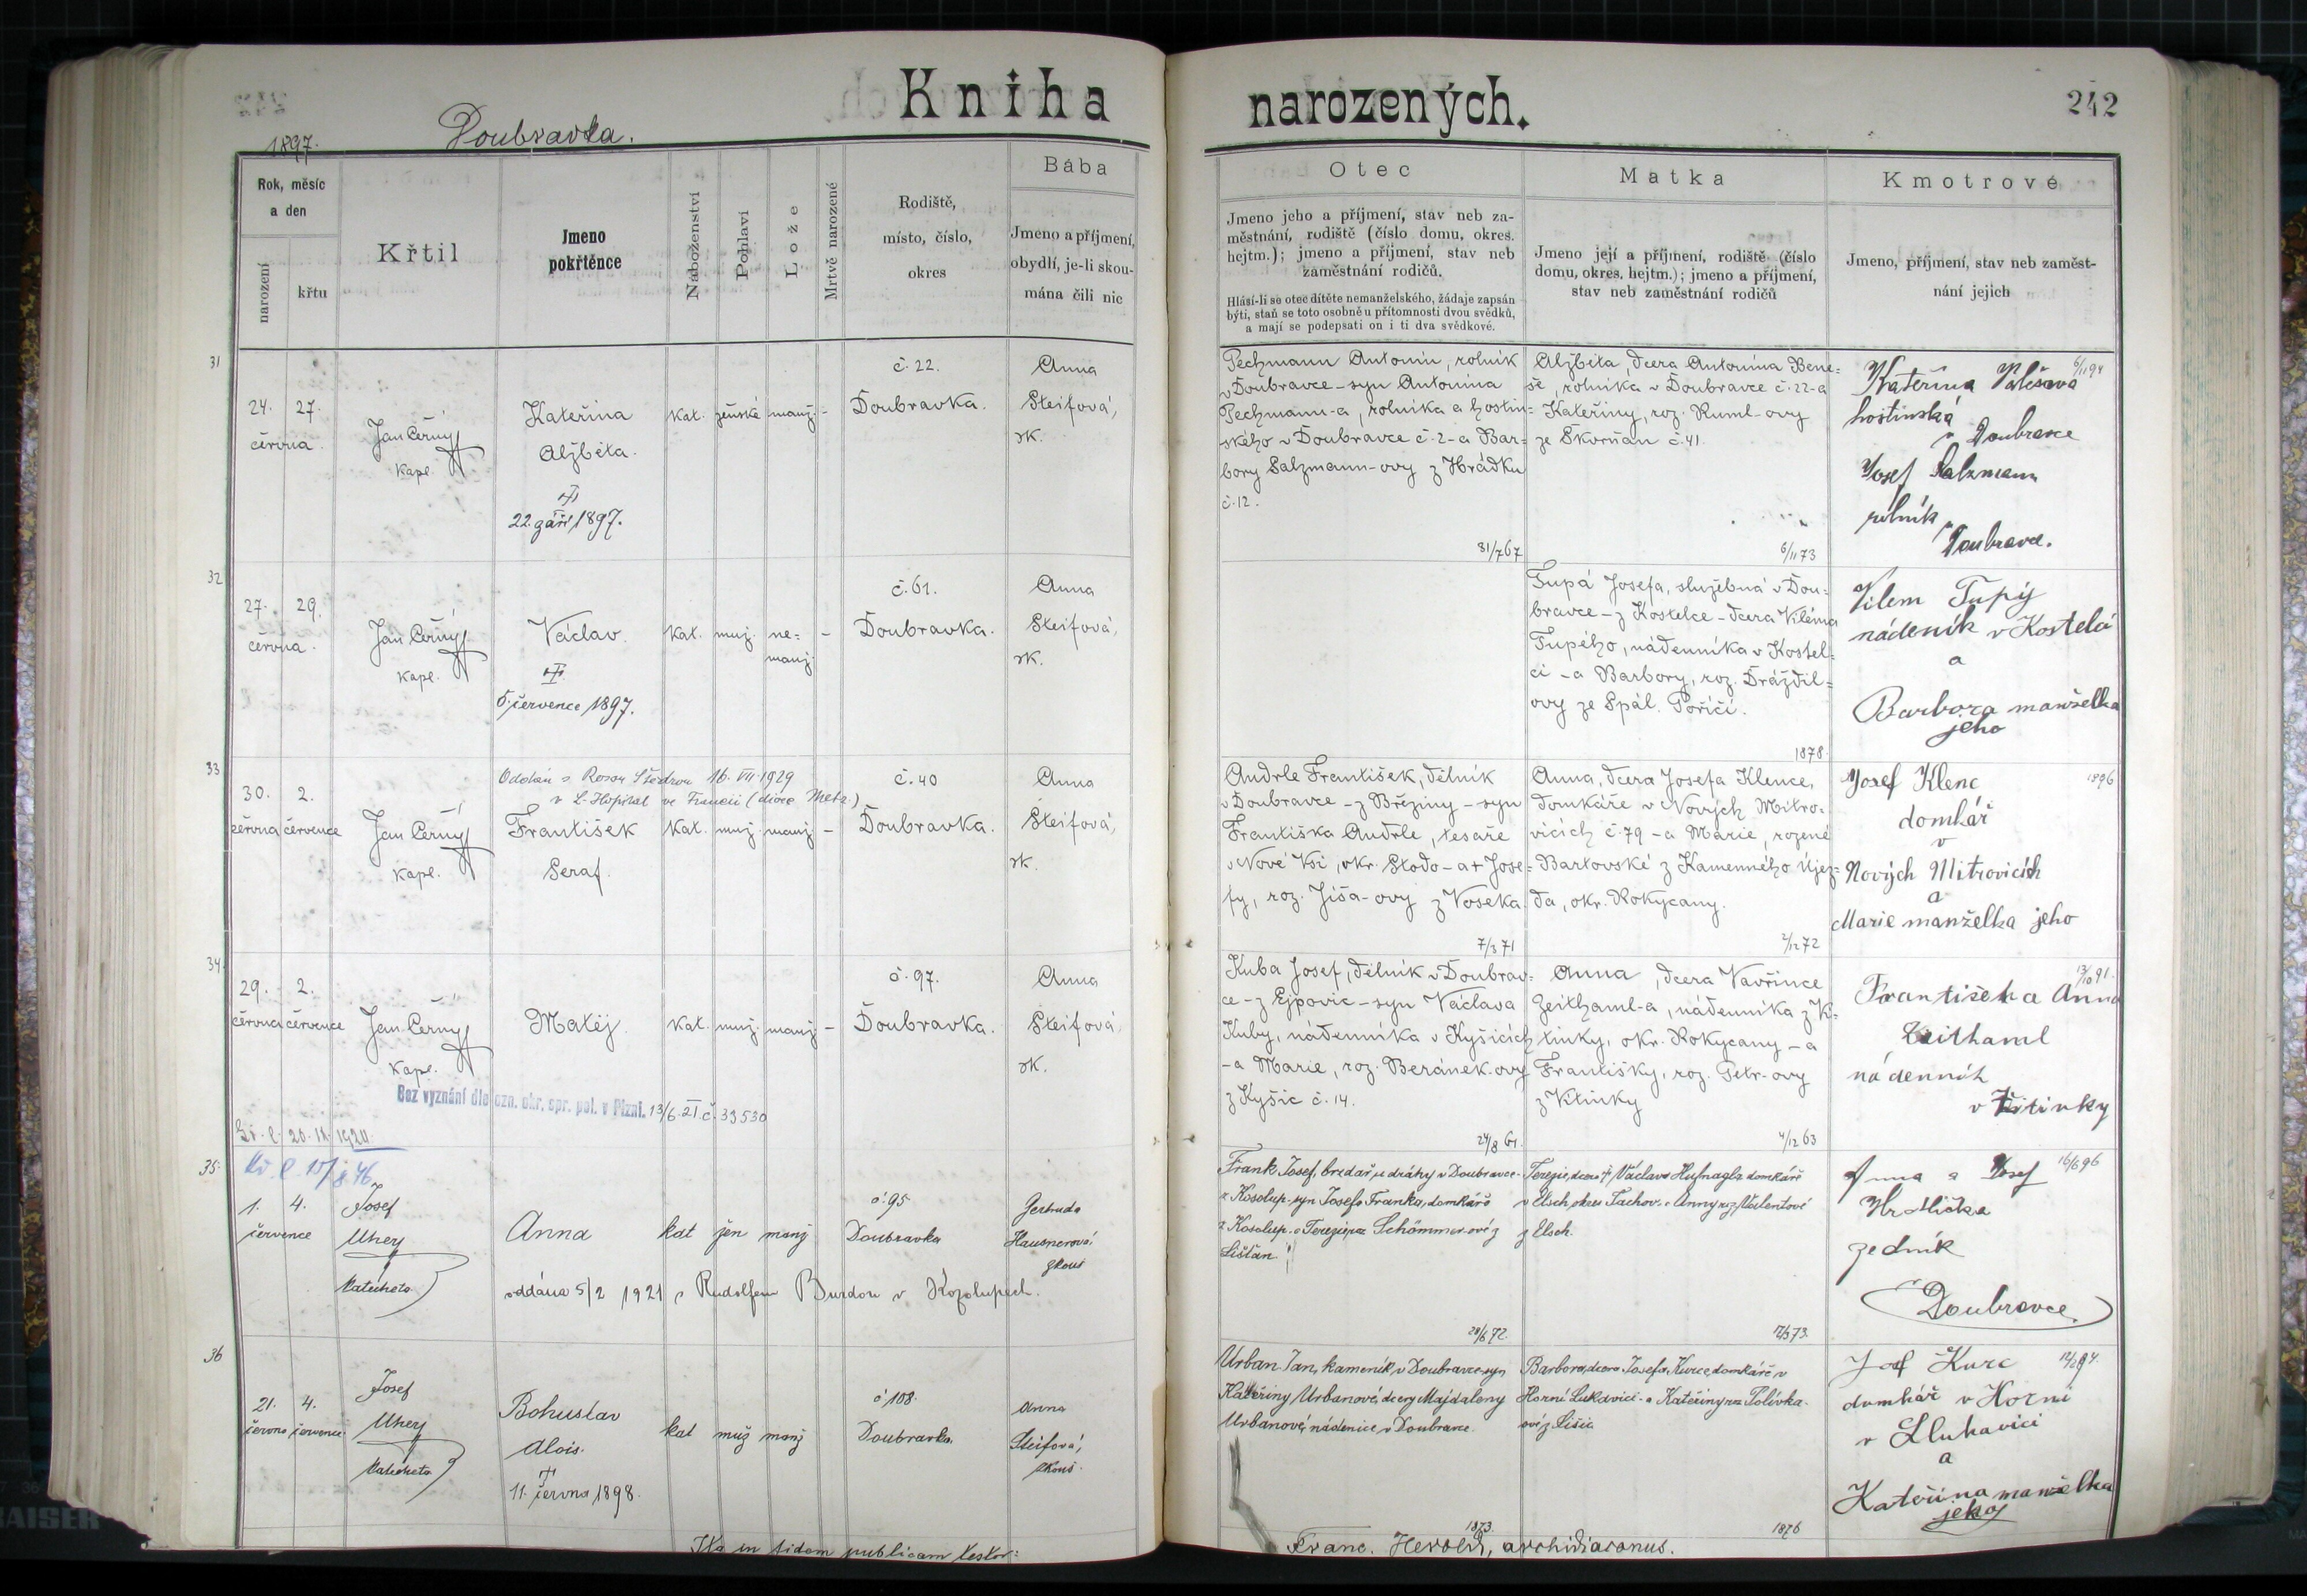 Kniha
narozených.
242
1897.
Doubravka.
Rok, měsíc
a den
narození
křtu
Křtil
Jmeno
pokřtěnce
Náboženství
Pohlaví
Lože
Mrtvě narozené
Rodiště,
místo, číslo,
okres
Bába
Jmeno a příjmení,
obydlí, je-li skou-
mána čili nic
Otec
Jmeno jeho a příjmení, stav neb za-
městnání, rodiště (číslo domu, okres.
hejtm.); jmeno a příjmení, stav neb
zaměstnání rodičů.
Hlásí-li se otec dítěte nemanželského, žádaje zapsán
býti, staň se toto osobně u přítomnosti dvou svědků,
a mají se podepsati on i ti dva svědkové.
Matka
Jmeno její a příjmení, rodiště (číslo
domu, okres. hejtm.); jmeno a příjmení,
stav neb zaměstnání rodičů
Kmotrové
Jmeno, příjmení, stav neb zaměst-
nání jejich
31
24. 27.
června
Jan Černý
kapl.
Kateřina
Alžběta.
22. září 1897.
kat. ženské manž. -
č. 22.
Doubravka.
Anna
Steifová,
zk.
Pechmann Antonín, rolník
v Doubravce - syn Antonína
Pechmann-a, rolníka a hostin-
ského v Doubravce č. 2 - a Bar-
bory Salzmann-ovy z Hrádku
č. 12.
31/7 67
Alžběta, dcera Antonína Bene-
še, rolníka v Doubravce č. 22 - a
Kateřiny, roz. Ruml-ovy
ze Skvrňan č. 41.
6/11 73
6/11 94
Kateřina
hostinská
v Doubravce
Josef Salzmann
rolník
v Doubravce.
32
27. 29.
června.
Jan Černý
kapl.
Václav.
5. července 1897.
kat. muž. ne-
manž. -
č. 61.
Doubravka.
Anna
Steifová,
zk.
Tupá Josefa, služebná v Dou-
bravce - z Kostelce - dcera Viléma
Tupého, nádenníka v Kostel-
ci - a Barbory, roz. Dráždil-
ovy ze Spál. Poříčí.
1878.
Vilem Tupý
nádeník v Kostelci
a
Barbora manželka
jeho
33
Oddán s Rosou 16. VII. 1929
v L-Hopital ve Francii (diöce Metz.)
30. 2.
června července
Jan Černý
kapl.
František
Seraf.
kat. muž. manž. -
č. 40
Doubravka.
Anna
Steifová,
zk.
Andrle František, dělník
v Doubravce - z Březiny - syn
Františka Andrle, tesaře
v Nové Vsi, okr. Stodo - a + Jose-
fy, roz. Jíša-ovy z Voseka.
7/3 71
Anna, dcera Josefa Klence,
domkáře v Nových Mitro-
vicích č. 79 - a Marie, rozené
Bartovské z Kamenného Újez-
da, okr. Rokycany.
2/12 72
1896
Josef Klenc
domkář
v
Nových Mitrovicích
a
Marie manželka jeho
34
29. 2.
června července
Jan Černý
kapl.
Matěj.
kat. muž. manž. -
č. 97.
Doubravka.
Anna
Steifová,
zk.
Bez vyznání dle ozn. okr. spr. pol. v Plzni. 13/6. 21. č. 33530
Kuba Josef, dělník v Doubrav-
ce - z Ejpovic - syn Václava
Kuby, nádenníka v Kyšicích
- a Marie, roz. Beránek-ovy
z Kyšic č. 14.
24/8 61.
Anna, dcera Vavřince
Zeithaml-a, nádenníka z K-
tinky, okr. Rokycany - a
Františky, roz. Petr-ovy
z Kitinky
4/12 63
13/10 91.
František a Anna
Zeithaml
nádenník
35.
Kř. l. 15/8 46.
1. 4.
července
Josef
Uhey
katecheta
Anna
kat žen manž
č 95
Doubravka
Gertruda
Hausnerová
zkouš
oddána 5/2 1921 s Rudolfem Burdou v Kozolupech.
Frank Josef, brzdař u dráhy v Doubravce -
z Kosolup - syn Josefa Franka, domkáře
z Kosolup - a Terezie roz Schömmer-ové z
Lišťan.
28/6 72.
Terezie, dcera + Václava Hufnagla domkáře
v Elsch, okres Tachov - a Anny roz. Valentové
z Elsch.
16/6 96
Anna a Josef
Hrdlička
zedník
Doubravce
36
21. 4.
června července
Josef
Uhey
katecheta
Bohuslav
Alois.
+
11. června 1898.
kat muž manž
č 108.
Doubravka
Anna
Steifová,
zkouš.
Urban Jan, kameník v Doubravce - syn
Kateřiny Urbanové, dcery Majdaleny
Urbanové, nádenice v Doubravce.
1873.
Barbora, dcera Josefa Kurce, domkáře v
Horní Lukavici - a Kateřiny roz Polívka-
ové z Lišic
1876
Josef Kurc
domkář v Horní
v Lukavici
a
Kateřina manželka
jeho
Ita in fidem publicam testor:
Franc. Herold, archidiaconus.